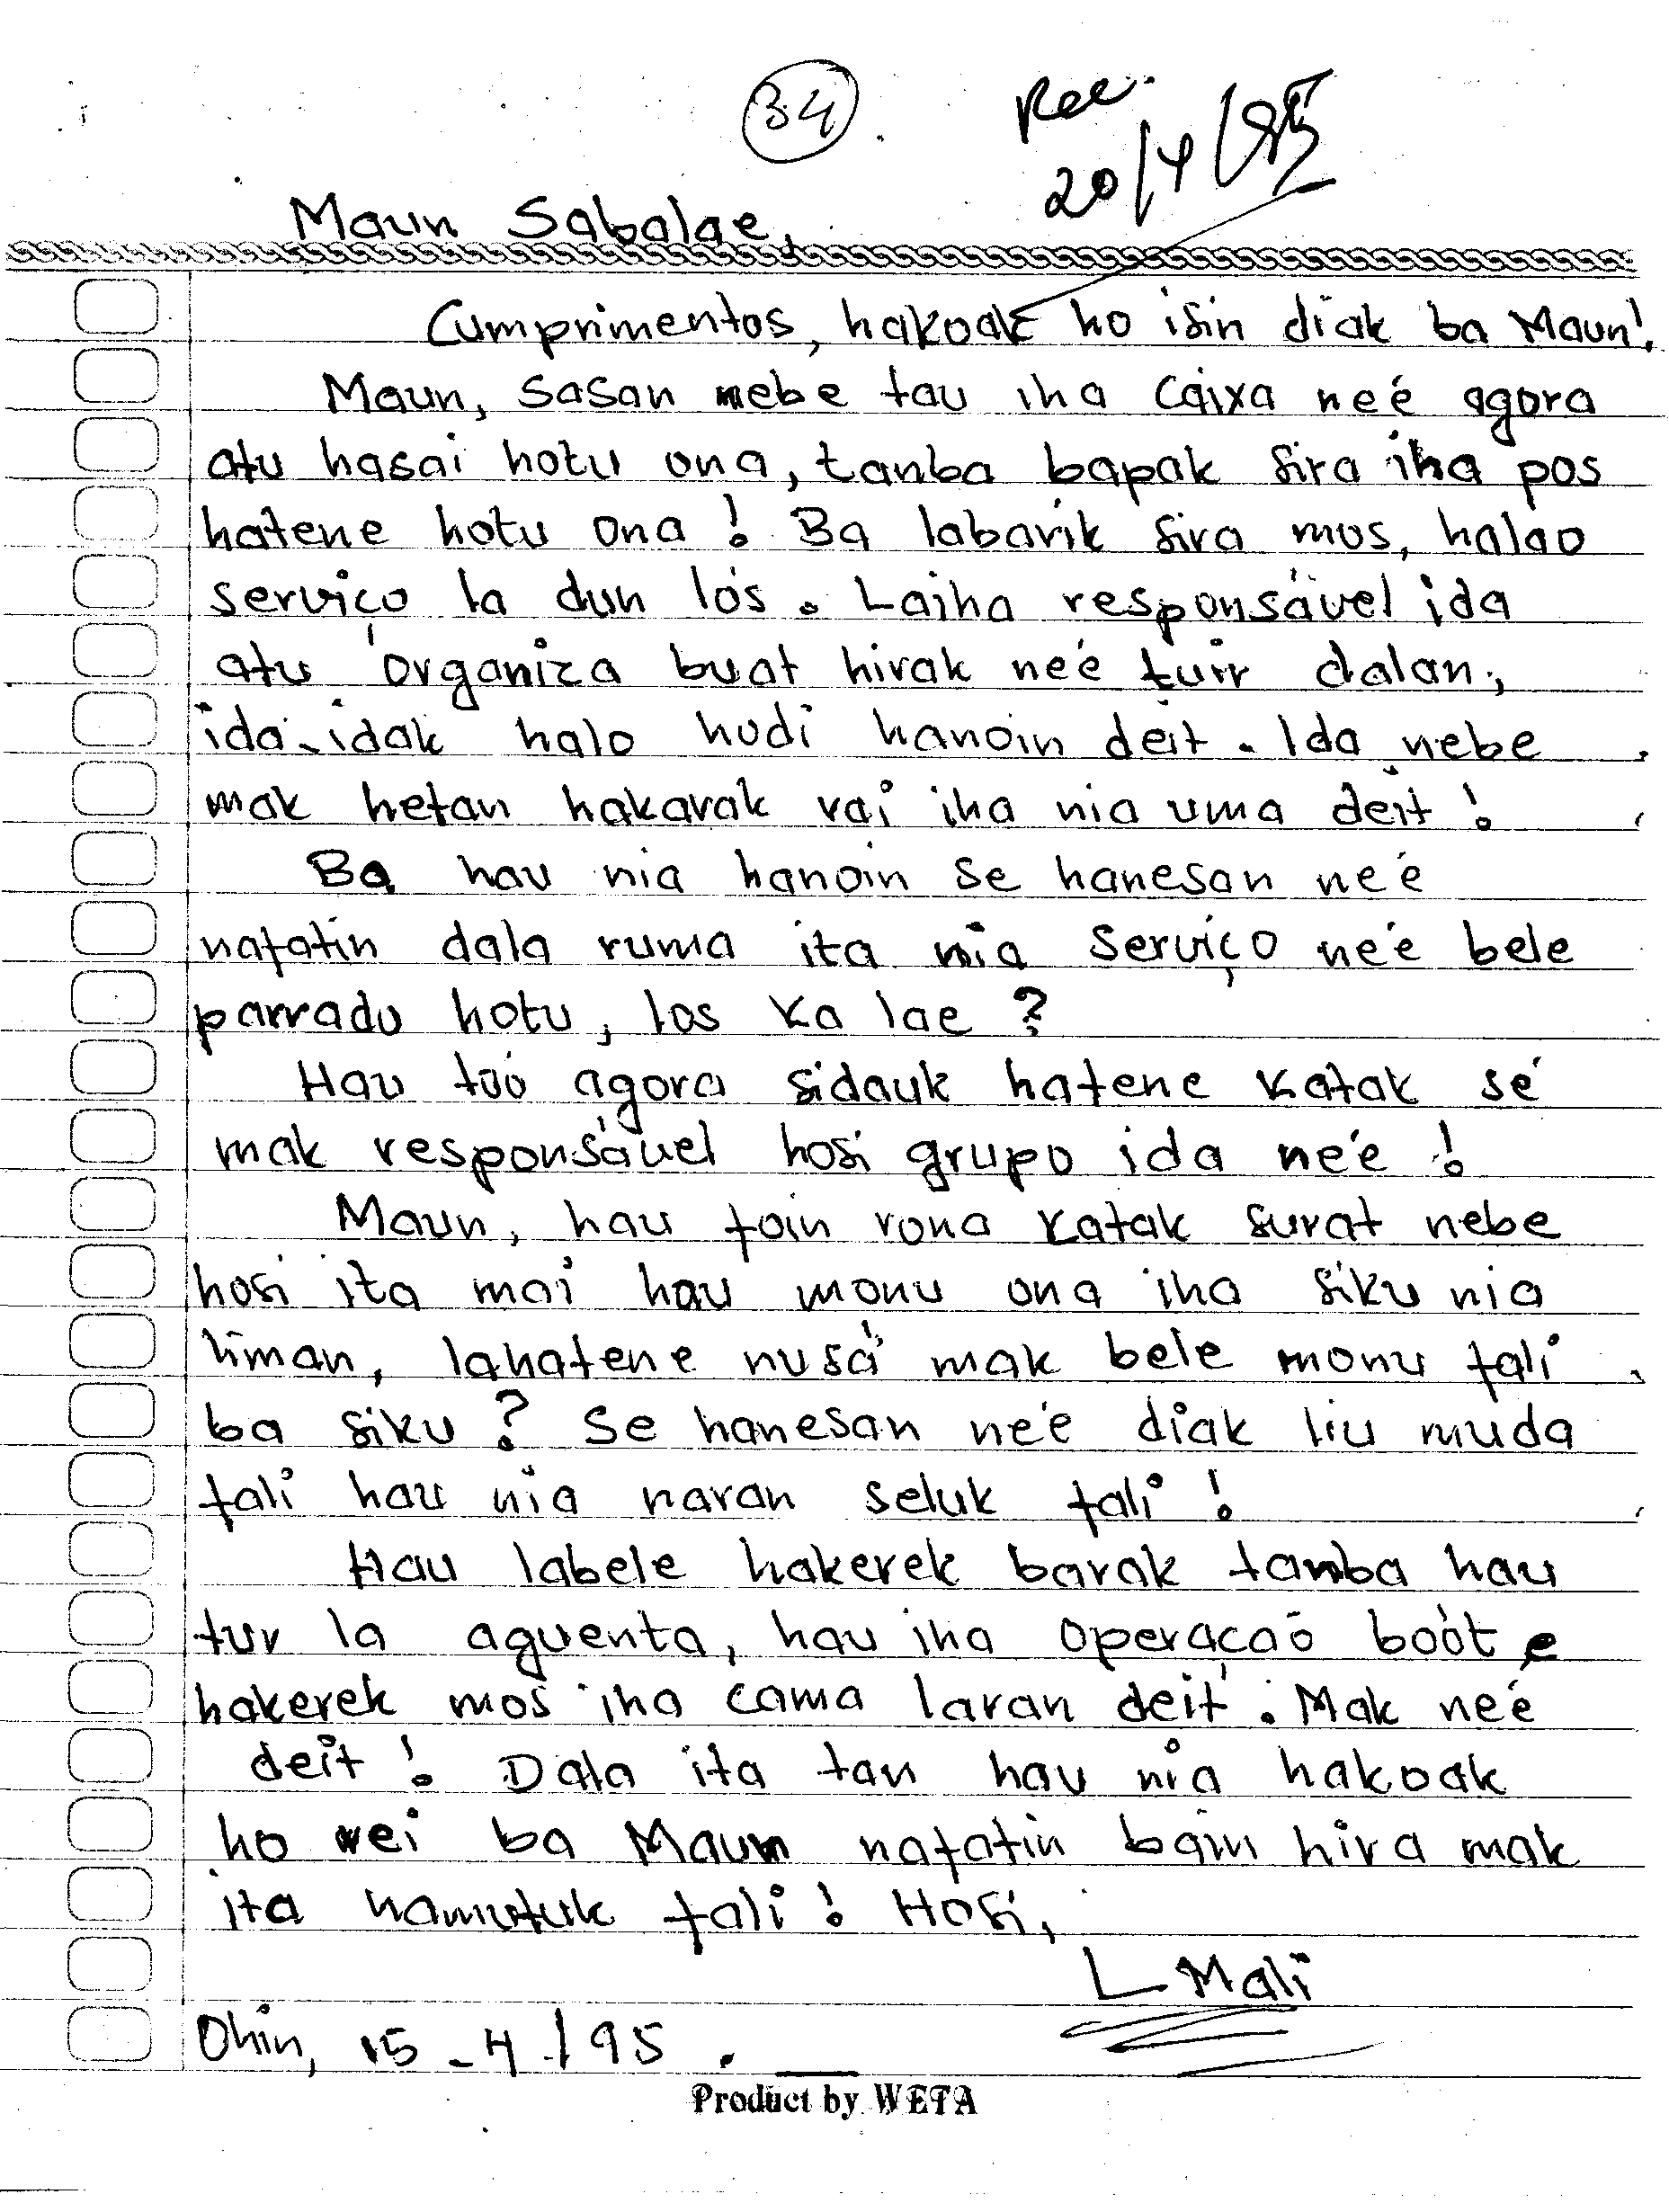 34
Rec.
20/4/95
Maun Sabalae,
Cumprimentos, hakoak ho isin diak ba Maun!
Maun, sasan nebe tau iha caixa neé agora
atu hasai hotu ona, tanba bapak sira iha pos
hatene hotu ona! Ba labarik sira mos, halao
serviço la dun lós. Laiha responsável ida
atu organiza buat hirak neé tuir dalan,
ida-idak halo hudi hanoin deit. Ida nebe
mak hetan hakarak rai iha nia uma deit!
Ba hau nia hanoin se hanesan neé
nafatin dala ruma ita nia serviço neé bele
parradu hotu, los ka lae?
Hau toó agora sidauk hatene katak sé
mak responsável hosi grupo ida neé!
Maun, hau foin rona katak surat nebe
hosi ita mai hau monu ona iha siku nia
liman, lahatene nusá mak bele monu fali
ba siku? Se hanesan neé diak liu muda
fali hau nia naran seluk fali!
Hau labele hakerek barak tamba hau
tur la aguenta, hau iha operaçaõ boót e
hakerek mos iha cama laran deit. Mak neé
deit! Dala ita tan hau nia hakoak
ho rei ba Maun nafatin bain hira mak
ita hamutuk fali! Hosi,
L Mali
Ohin, 15-4-/95.
Product by WETA